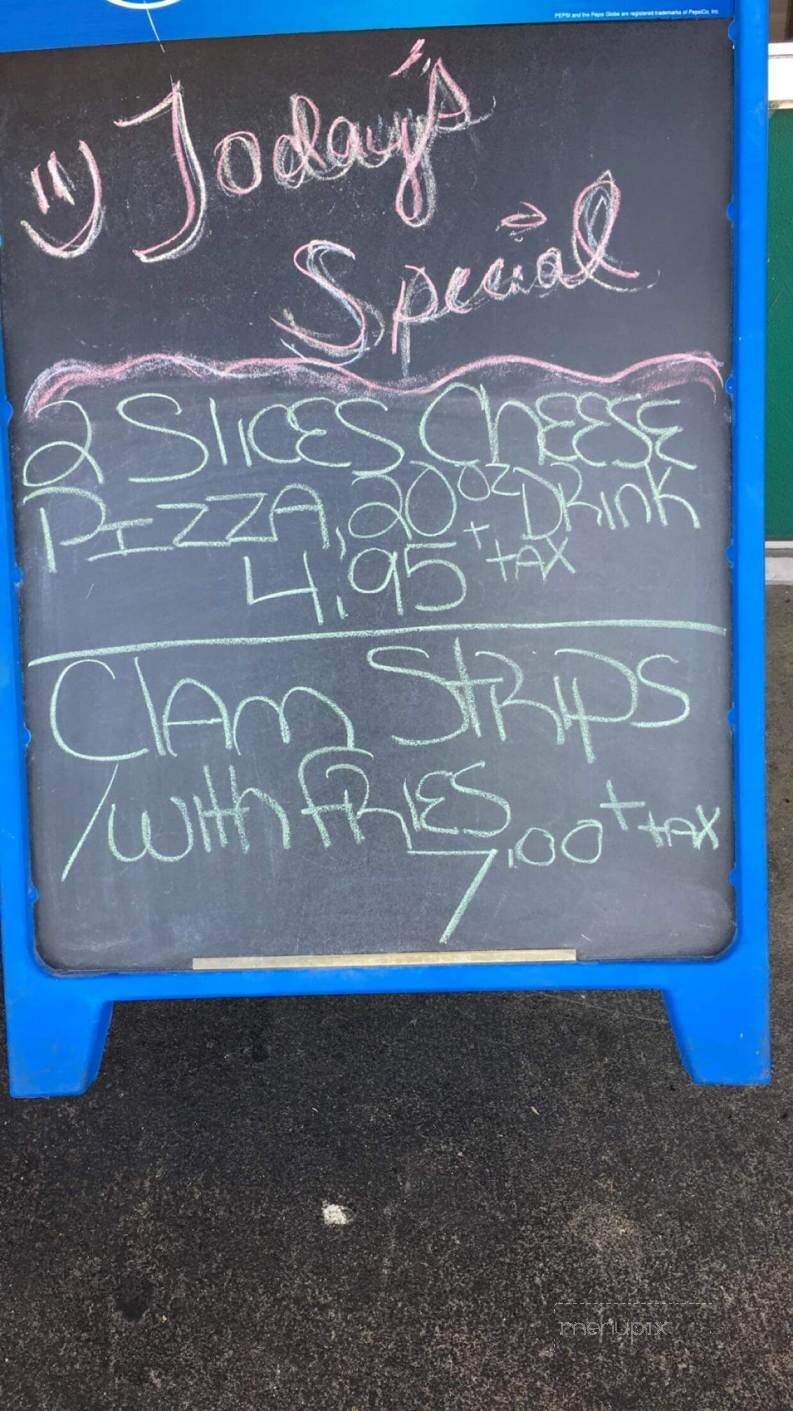 PEPSI and the Pepsi Globe are registered trademarks of PepsiCo, Inc.
Today's
Special
2 Slices Cheese
Pizza, 20 oz Drink
4.95 + tax
Clam Strips
with fries
7.00 + tax
menupix